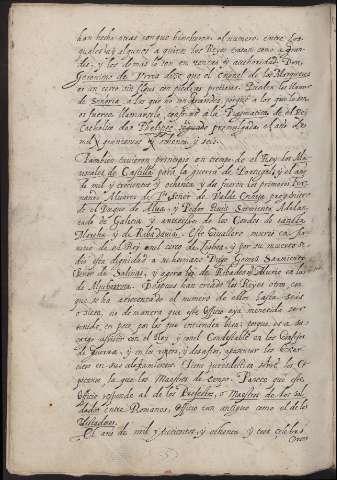 han hecho otras con que hincheron el numero, entre los
quales ay algunos a quien los Reyes tratan como a gran-
des, y los demas lo son en rentas y authoridad. Don
Geronimo de Urrea dize que el Coronel de los Marqueses
es un cerco sin flores con piedras preciosas.
Señoria a los que no son grandes, porque a los que lo son
es fuerça llamarsela, conforme a la Pragmatica de el Rey
Catholico don Phelipe segundo promulgada el año de
mil y quinientos y ochenta y seis.
Tambien tuvieron principio en tiempo de el Rey los Ma-
riscales de Castilla para la guerra de Portugal, y el año
de mil y trecientos y ochenta y dos fueron los primeros Fer-
nando Alvarez de Señor de Valde Corneja progenitor
de el Duque de Alva, y Pedro Ruiz Sarmiento Adelan-
tado de Galicia y antecessor de los Condes de Santa
Martha y de Ribadavia. Este Cavallero murio en ser-
vicio de el Rey en el cerco de Lisboa, y por su muerte se
dio esta dignidad a su hermano Diego Gomez Sarmiento
Señor de Salinas, y agora lo es de Ribadeo y Murio en la de
de Aljubarrota. Despues han criado los Reyes otros, con
que se ha acrecentado el numero de ellos hasta seis
o siete, no de manera que este Officio aya menester ser
tenido en poco, por los que entienden bien, porque es a su
cargo assistir con el Rey, y con el Condestable en los Consejos
de Guerra, y en los rieptos, y desafios, aposentar los Exer-
citos en sus alojamientos. Tiene jurisdiction sobre los
que los Maestros de Campo. Parece que este
Officio responde al de los Prefectos, o Maestros de los sol-
dados entre Romanos, Officio tan antiguo como el de los
Dictadores.
El año de mil y trecientos, y ochenta, y tres celebro